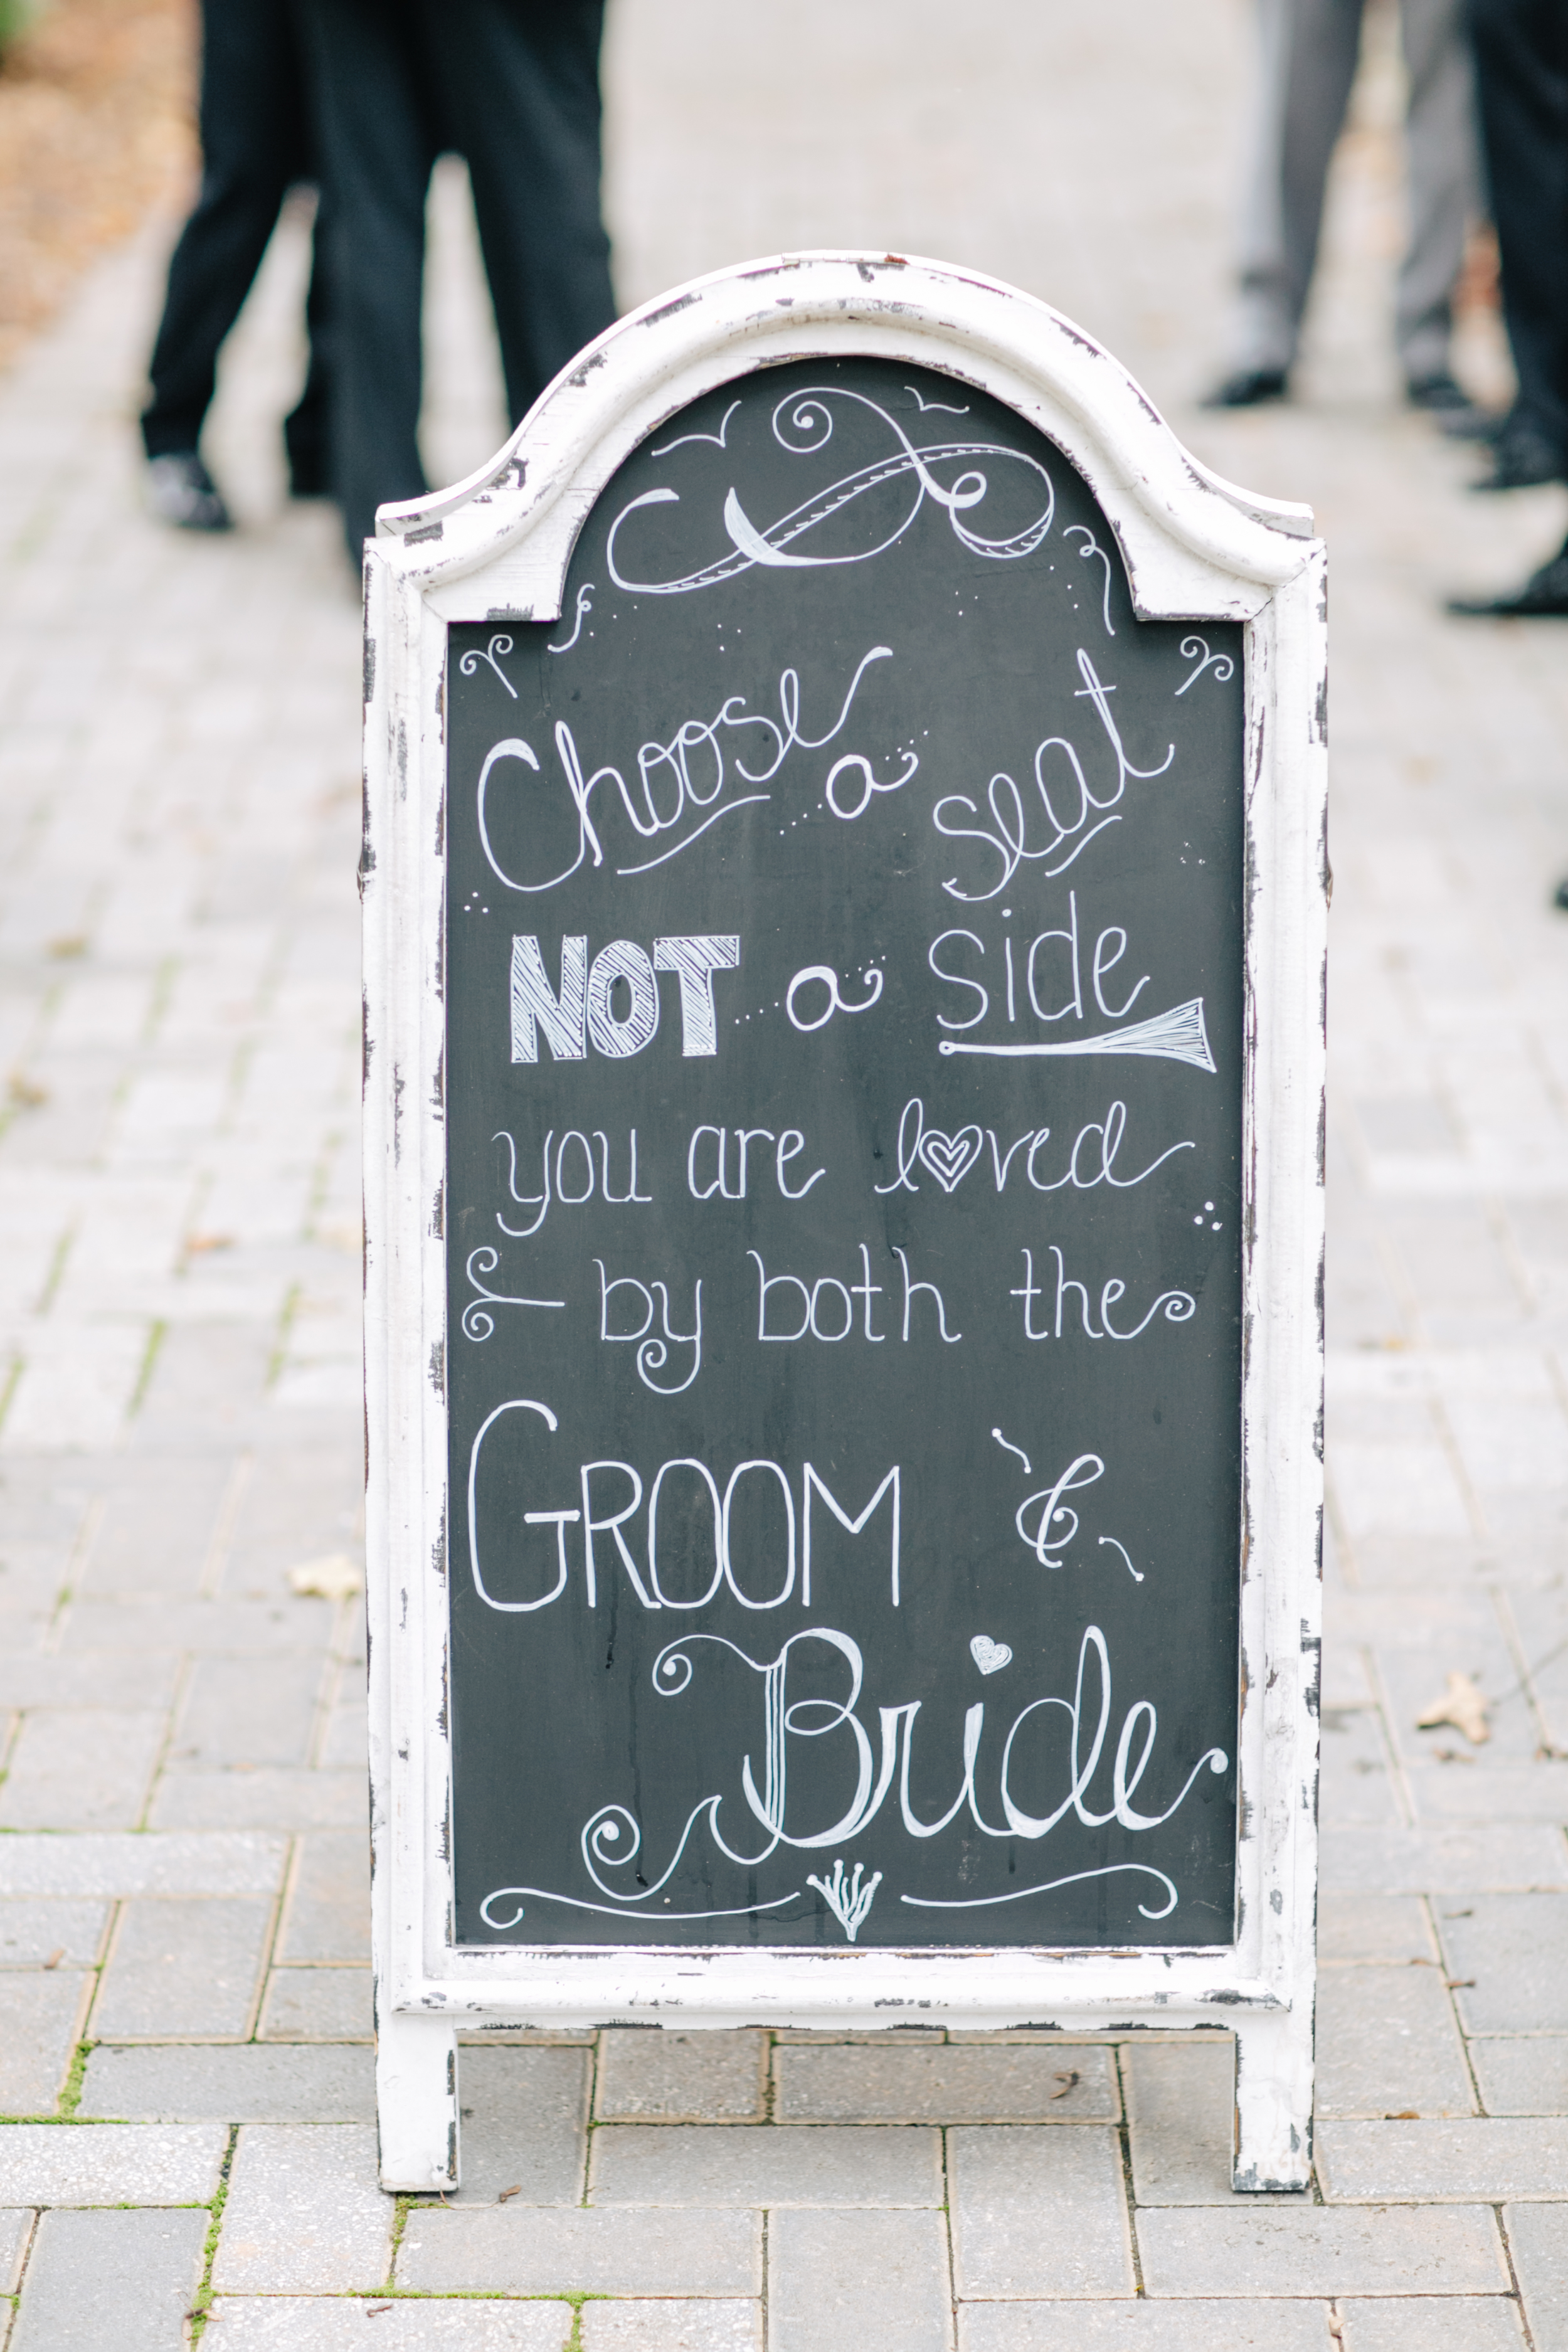 Choose a seat
NOT a side
you are loved
by both the
GROOM &
Bride